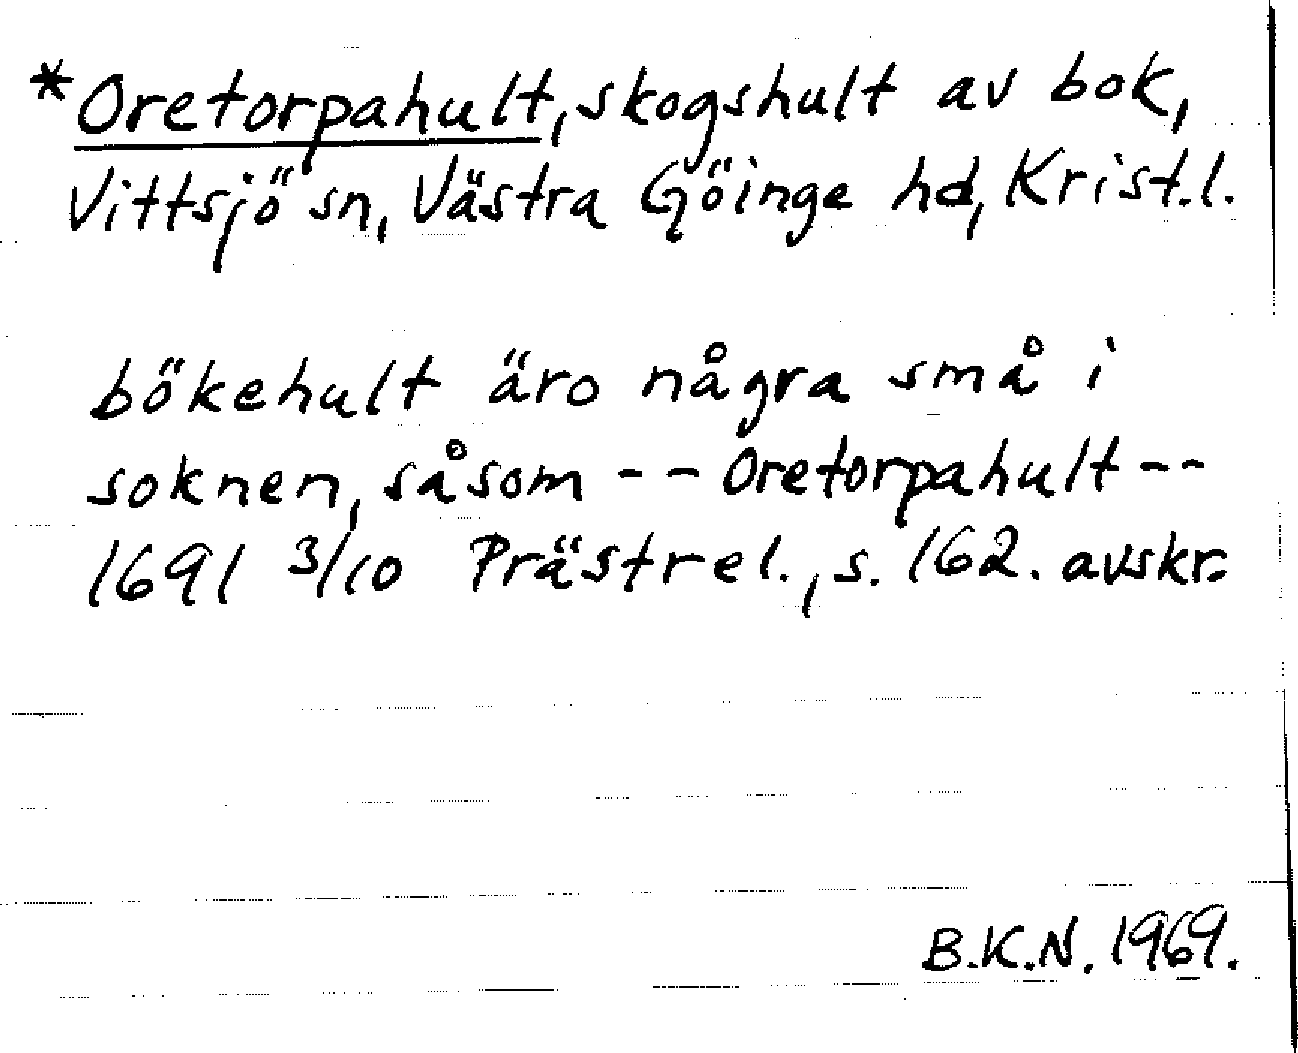 *Oretorpahult, skogshult av bok,
Vittsjö sn, Västra Göinge hd, Krist.l.
bökehult äro några små i
soknen, såsom -- Oretorpahult --
1691 3/10 Prästrel., s. 162. avskr.
B.K.N. 1969.